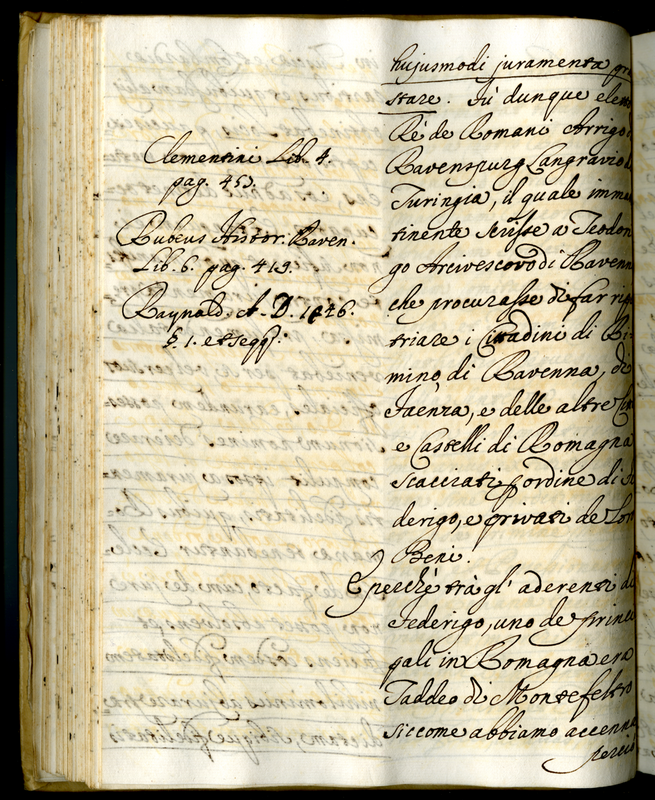 Clementini Lib. 4.
pag. 453.
Rubeus Histor. Raven.
Lib. 6. pag. 419.
Raynald. A. D. 1246.
§. 1. et seqq.
hujusmodi juramenta
stare. Fù dunque
Rè de Romani Arrigo
Ravenspurg Langravio
Turingia, il quale imma
tinente scrisse a Teodon
go Arcivescovo di Ravenn
che procurasse di far
triare i Cittadini di
mino, di Ravenna, di
Faenza, e delle altre
e Castelli di Romagna
scacciati p ordine di
derigo, e privati de
Beni.
E perchè trà gl' aderenti di
Federigo, uno de princi
pali in Romagna era
Taddeo di Montefeltro
siccome abbiamo accenna
perciò